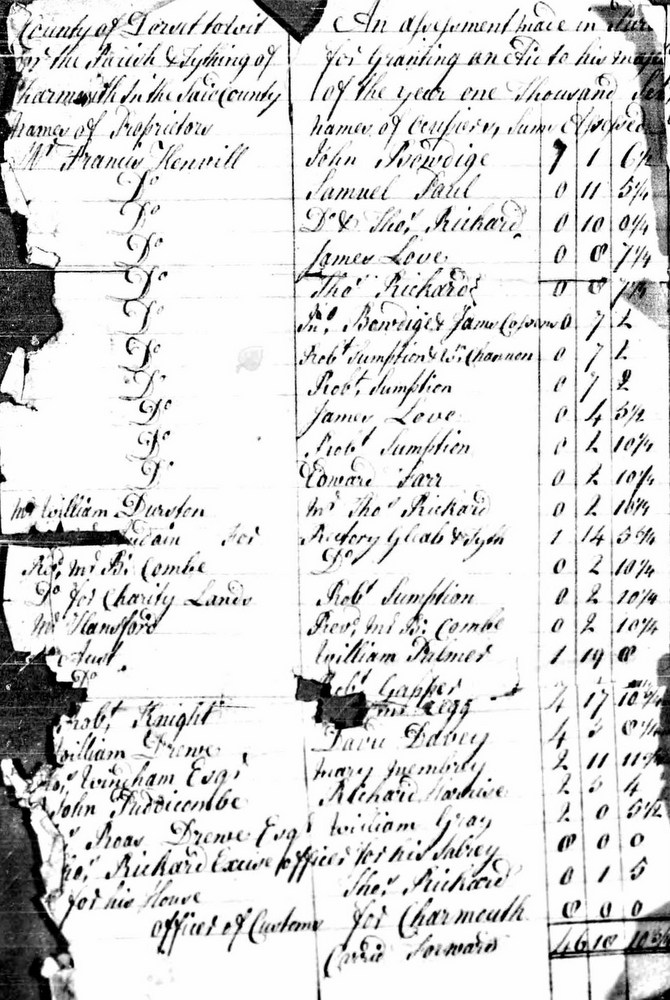 County of Dorset to wit An assessment made in
for the Parish & Tything of for Granting an Aid to his
Charmouth In the Said County of the Year one Thousand
Names of Proprietors Names of Occupiers, Sums Assessed
Mr Francis Henvill John Bowdige 7 1 6½
Do Samuel Paul 0 11 5¼
Do Do & Thos Rickard 0 10 0¼
Do James Love 0 8 7¼
Do Thos Rickard 0 8 7¼
Do Jno Bowdige & James 0 7 2
Do Robt Sumption & Channon 0 7 2
Do Robt Sumption 0 7 2
Do James Love 0 4 3½
Do Robt Sumption 0 2 10¼
Do Edward Farr 0 2 10¼
Mr William Durston Mr Thos Rickard 0 2 10¼
for Rectory Gleab & Tyth 1 14 5¼
Revd Mr Bn Combe Do 0 2 10¼
Do for Charity Lands Robt Sumption 0 2 10¼
Mr Hansford Revd Mr Bn Combe 0 2 10¼
William Palmer 1 19 8
Do Robt Gapper
Robt Knight Legg 4 17 10¾
William Drewe Davie Davey 4 3
Thos Wingham Esqr Mary Membrey 2 11 11¾
John Puddicombe Richard 2 3 4
Roas Drewe Esqr William Gray 2 0 5½
Thos Rickard Excise officer for his Salrey 0 0 0
for his House Thos Rickard 0 1 5
officer of Customs for Charmouth 0 0 0
Carrid Forward 46 10 10¾